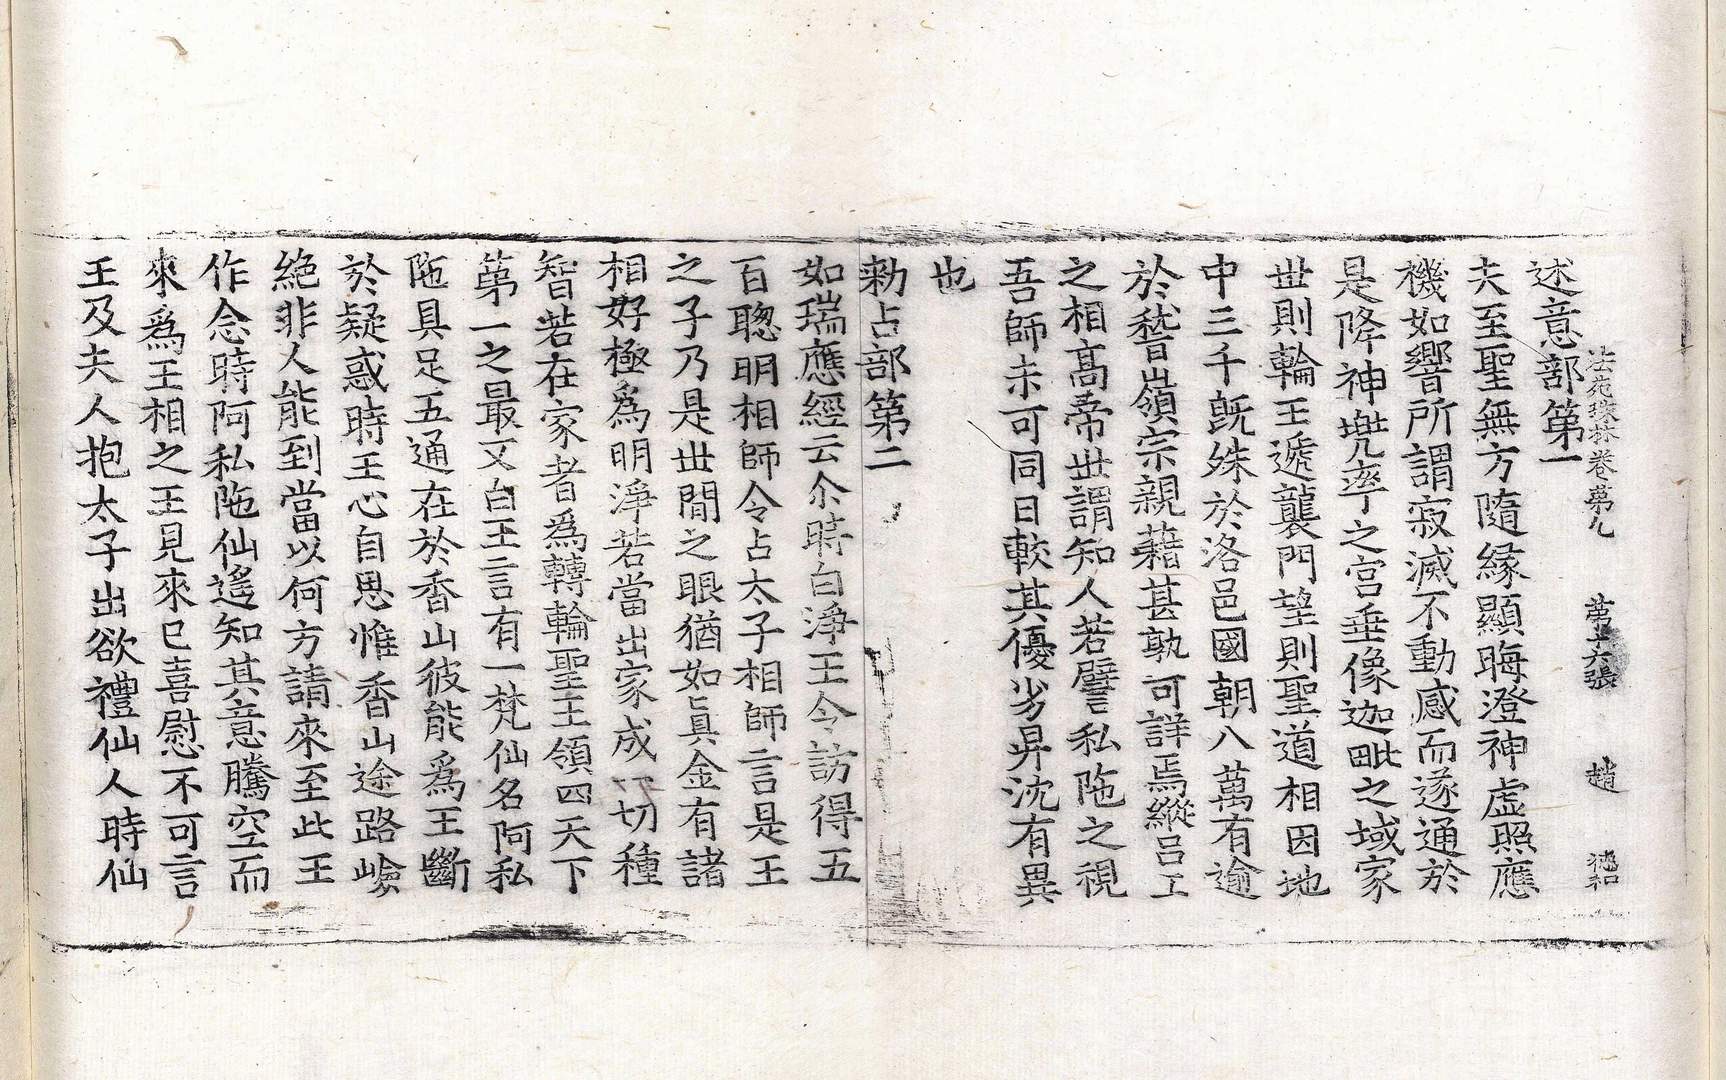 法苑珠林卷第九　第十六張　趙　德和
述意部第一
夫至聖無方隨緣顯晦澄神虛照應
機如響所謂寂滅不動感而遂通於
是降神兠率之宮垂像迦毗之域家
世則輪王遞襲門望則聖道相因地
中三千旣殊於洛邑國朝八萬有逾
於嵆嶺宗親藉甚孰可詳焉縱呂工
之相高帝世謂知人若譬私陁之視
吾師未可同日較其優劣昇沈有異
也
勑占部第二
如瑞應經云尒時白淨王令訪得五
百聰明相師令占太子相師言是王
之子乃是世間之眼猶如眞金有諸
相好極爲明淨若當出家成一切種
智若在家者爲轉輪聖王領四天下
第一之最又白王言有一梵仙名阿私
陁具足五通在於香山彼能爲王斷
於疑惑時王心自思惟香山途路嶮
絕非人能到當以何方請來至此王
作念時阿私陁仙遙知其意騰空而
來爲王相之王見來已喜慰不可言
王及夫人抱太子出欲禮仙人時仙